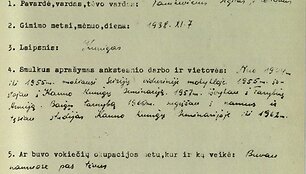 1. Pavardė,vardas,tėvo vardas:
2. Gimimo metai,mėnuo,diena: 1938. XI.7
3. Laipsnis: Kunigas
4. Smulkus aprašymas ankstesnio darbo ir vietovės: Nuo
iki 1955m. mokiausi vidurinėje mokykloje 1955m. įs-
tojau į Kauno Kunigų Seminariją. 1957m. išvykau į Tarybinę
Armiją. Baigęs tarnybą 1960m. sugrįžau į namus ir
tęsiau studijas Kauno kunigų seminarijoje iki 1962m.
5. Ar buvo vokiečių okupacijos metu,kur ir ką veikė: Buvau
namuose pas tėvus